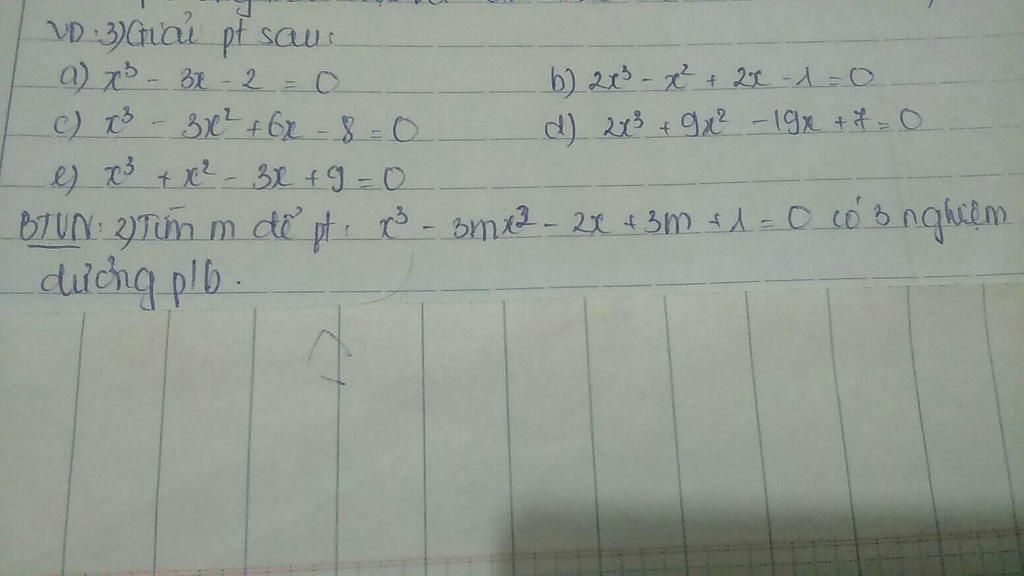 VD: 3) Giải pt sau:
a) x³ - 3x - 2 = 0 b) 2x³ - x² + 2x - 1 = 0
c) x³ - 3x² + 6x - 8 = 0 d) 2x³ + 9x² - 19x + 7 = 0
e) x³ + x² - 3x + 9 = 0
BTVN: 2) Tìm m để pt: x³ - 3mx² - 2x + 3m + 1 = 0 có 3 nghiệm
dương p/b.